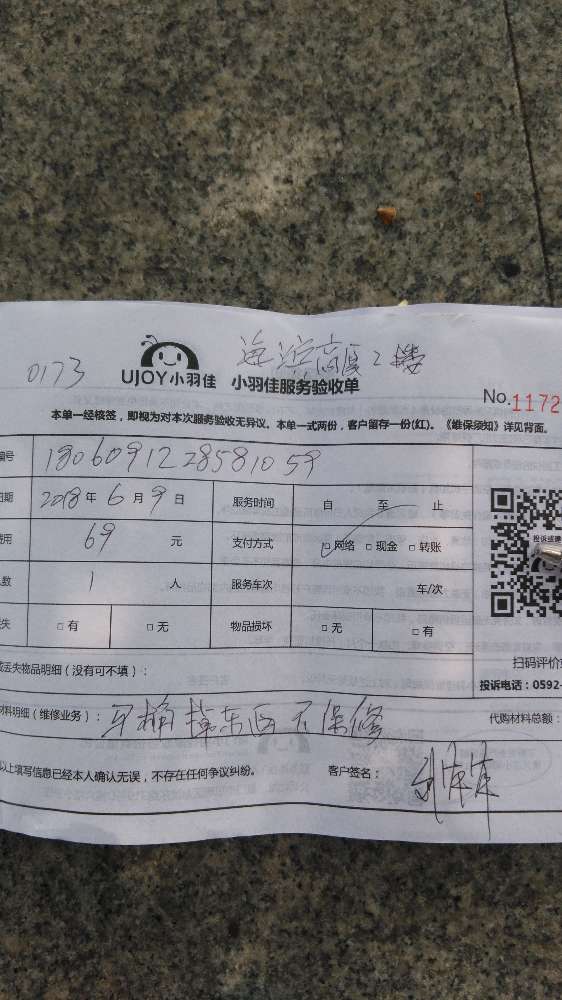 0173
海沧高厦2楼
UJOY小羽佳 小羽佳服务验收单
No.1172
本单一经核签，即视为对本次服务验收无异议。本单一式两份，客户留存一份(红)。《维保须知》详见背面。
编号 180609122858 1059
日期 2018年6月9日 服务时间 自 至 止
费用 69 元 支付方式 □网络 □现金 □转账
人数 1 人 服务车次 车/次
丢失 □有 □无 物品损坏 □无 □有
扫码评价
或丢失物品明细（没有可不填）：
投诉电话：0592-
材料明细（维修业务）： 马桶掉东西不保修
代购材料总额：
以上填写信息已经本人确认无误，不存在任何争议纠纷。 客户签名：